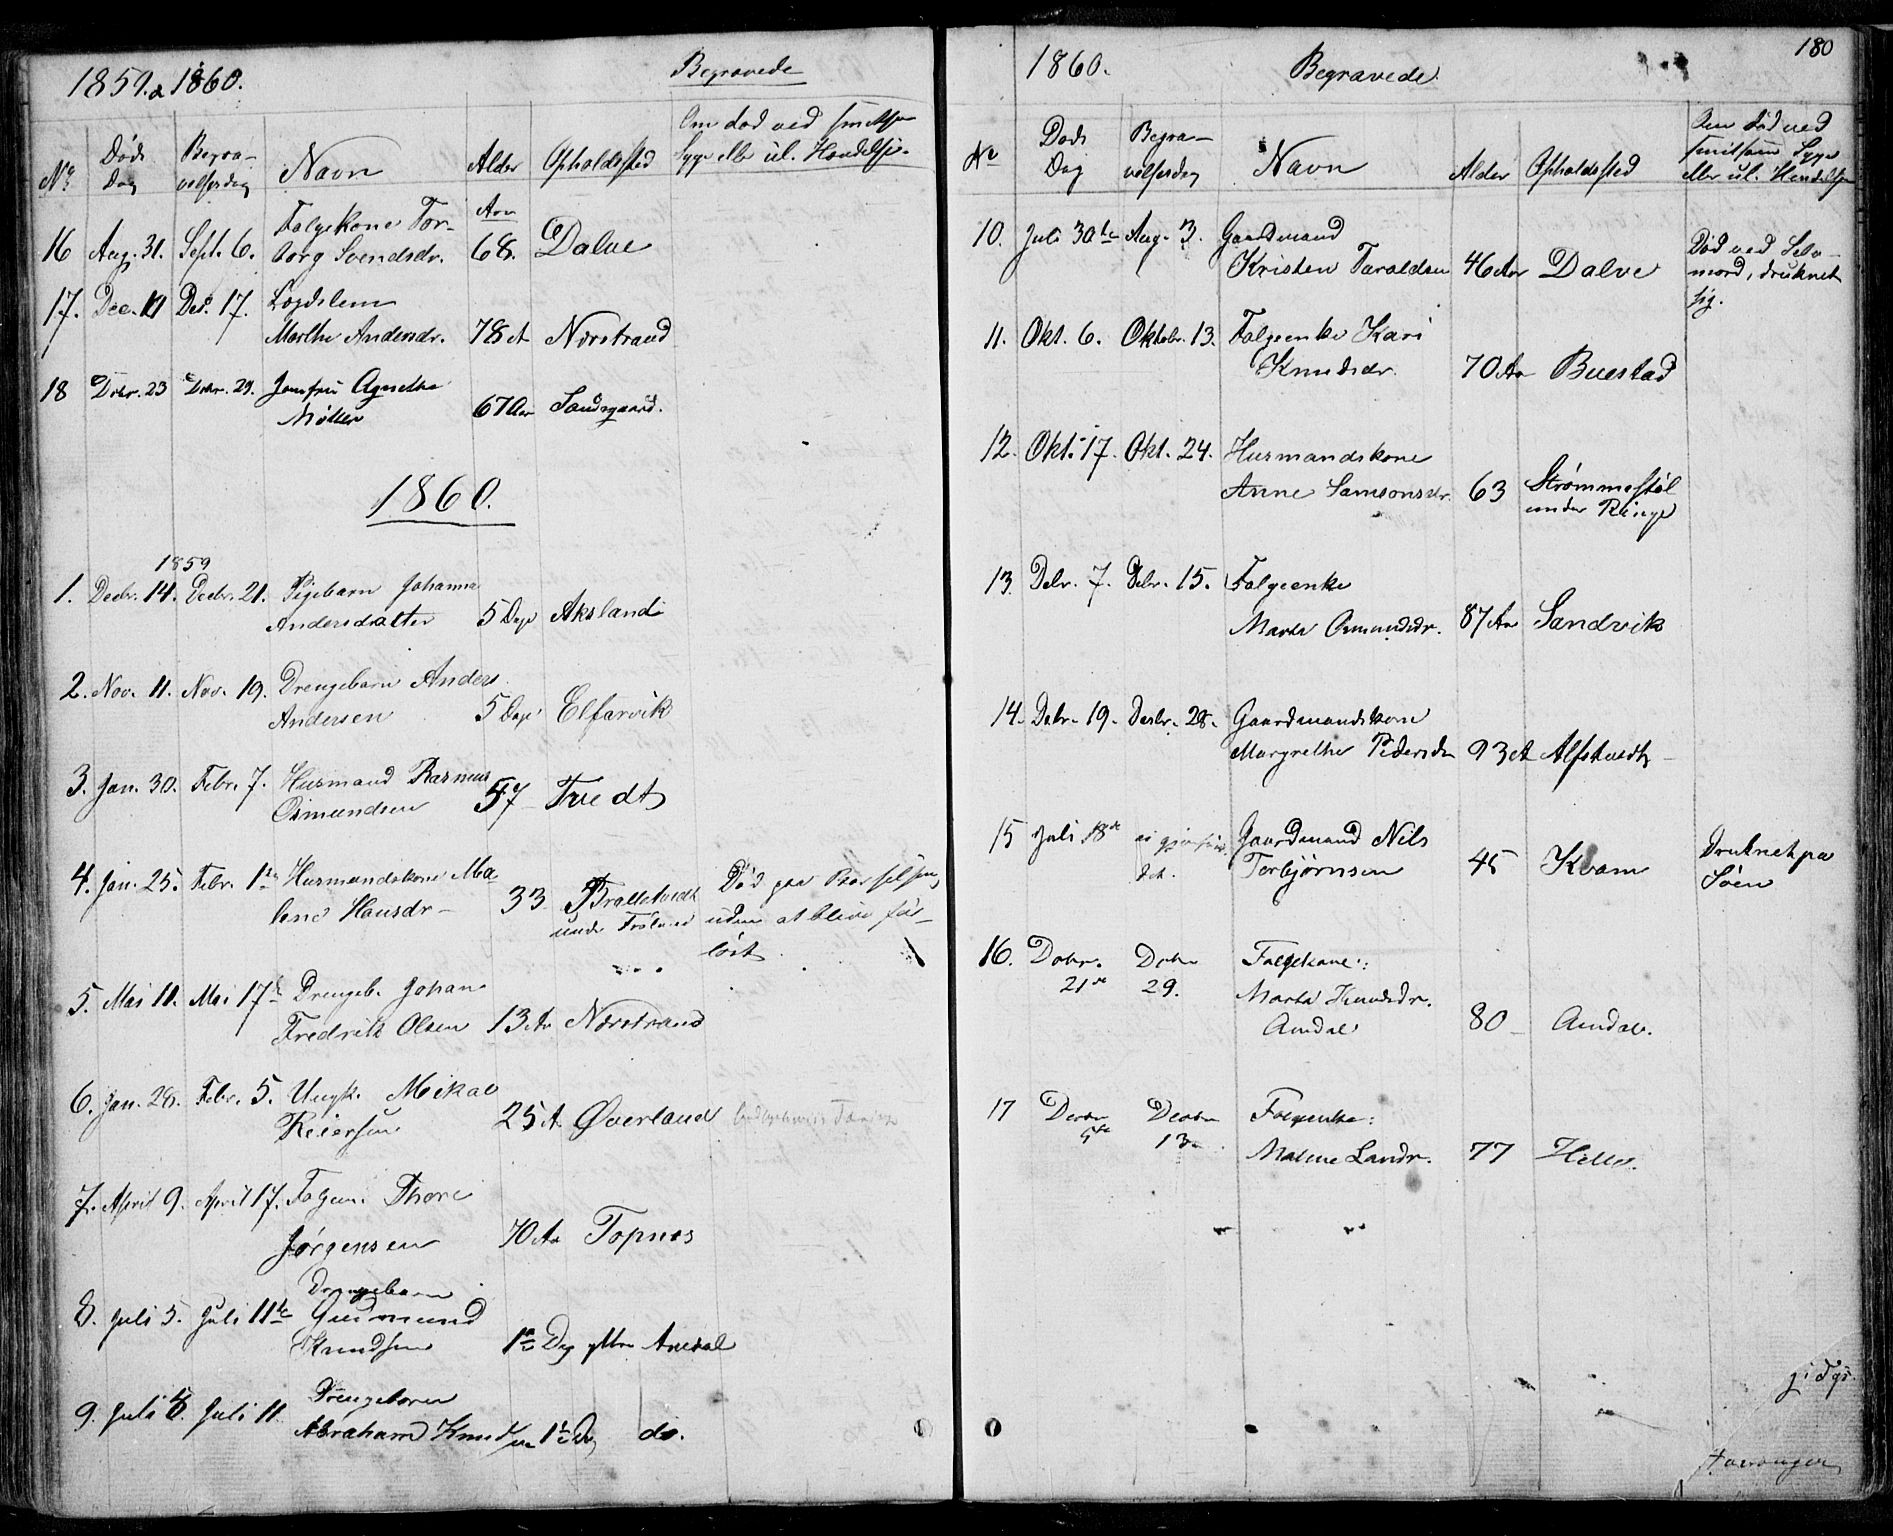 1859. & 1860.
Begravede
No
Døds Dag
Begravelsesdag
Navn
Alder
Opholdssted
Om død ved smitsom Syge eller ul. Hændelse.
16 Aug. 31. Sept. 6. Folgekone Tor-
borg Svendsdr. Aar 68. Dalve
17. Dec. Des. 17. Logdslem
Marthe Andersdr. 78 A Nærstrand
18 Decbr. 23 Decbr. 29. Jomfru Agnethe
Møller 67 Aar Sandsgaard.
1860.
1859
1. Decbr. 14. Decbr. 21. Pigebarn Johanna
Andersdatter 5 Dage Aksland
2. Nov. 11. Nov. 19. Drengebarn Anders
Andersen 5 Dage Elfarvik
3. Jan. 30. Febr. 7. Husmand Rasmus
Osmundsen 57 Tvedt
4. Jan. 25. Febr. 1ste Husmandskone Ma-
lene Hansdr 33 under
Død paa Barselseng
uden at blive for-
løst
5. Mai 11. Mai 17de Drengeb. Johan
Fredrik Olsen 13 Aar Nærstrand
6. Jan. 28. Febr. 5. Ungk. Mikal
Reiersen 25 A. Øverland
7. April 9. April 17. Folgem. Thore
Jørgensen 70 Aar Topnes
8. Juli 5. Juli 11te Drengebarn
Gudmund
Knudsen 1 Dag yttre Amdal
9. Juli Juli 11. Drengebarn
Abraham Knudsen 1½ Dag do.
180
1860.
Begravede
No
Døds Dag
Begravelsesdag
Navn
Alder
Opholdssted
Om død ved smitsom Syge eller ul. Hændelse
10. Juli 30te Aug. 3. Gaardmand
Kristen Taraldsen 46 Aar Dalve
Død ved Selv-
mord, druknet
sig.
11. Okt. 6. Oktobr. 13. Folgeenke Kari
Knudsdr. 70 Aar Buestad
12. Okt. 17. Okt. 24. Husmandskone
Anne Samsonsdr. 63 Strømmestøl
under Ringe
13. Debr. 7. Debr. 15. Folgeenke
Marta Osmundsdr. 87 Aar Sandvik
14. Debr. 19. Decbr. 28. Gaardmandskone
Margrethe Pedersdr 93 A
15 Juli 18de ei gjenfun-
det. Gaardmand Nils
Torbjørnsen 45 Kvam
Druknet paa
Søen
16. Decbr. 21de Decbr 29. Folgekone:
Marta Knudsdr.
Amdal 80 Amdal.
17 Decbr 5te Decbr 13 Folgeenke:
Malene Larsdr. 77 Hille.
Stavanger